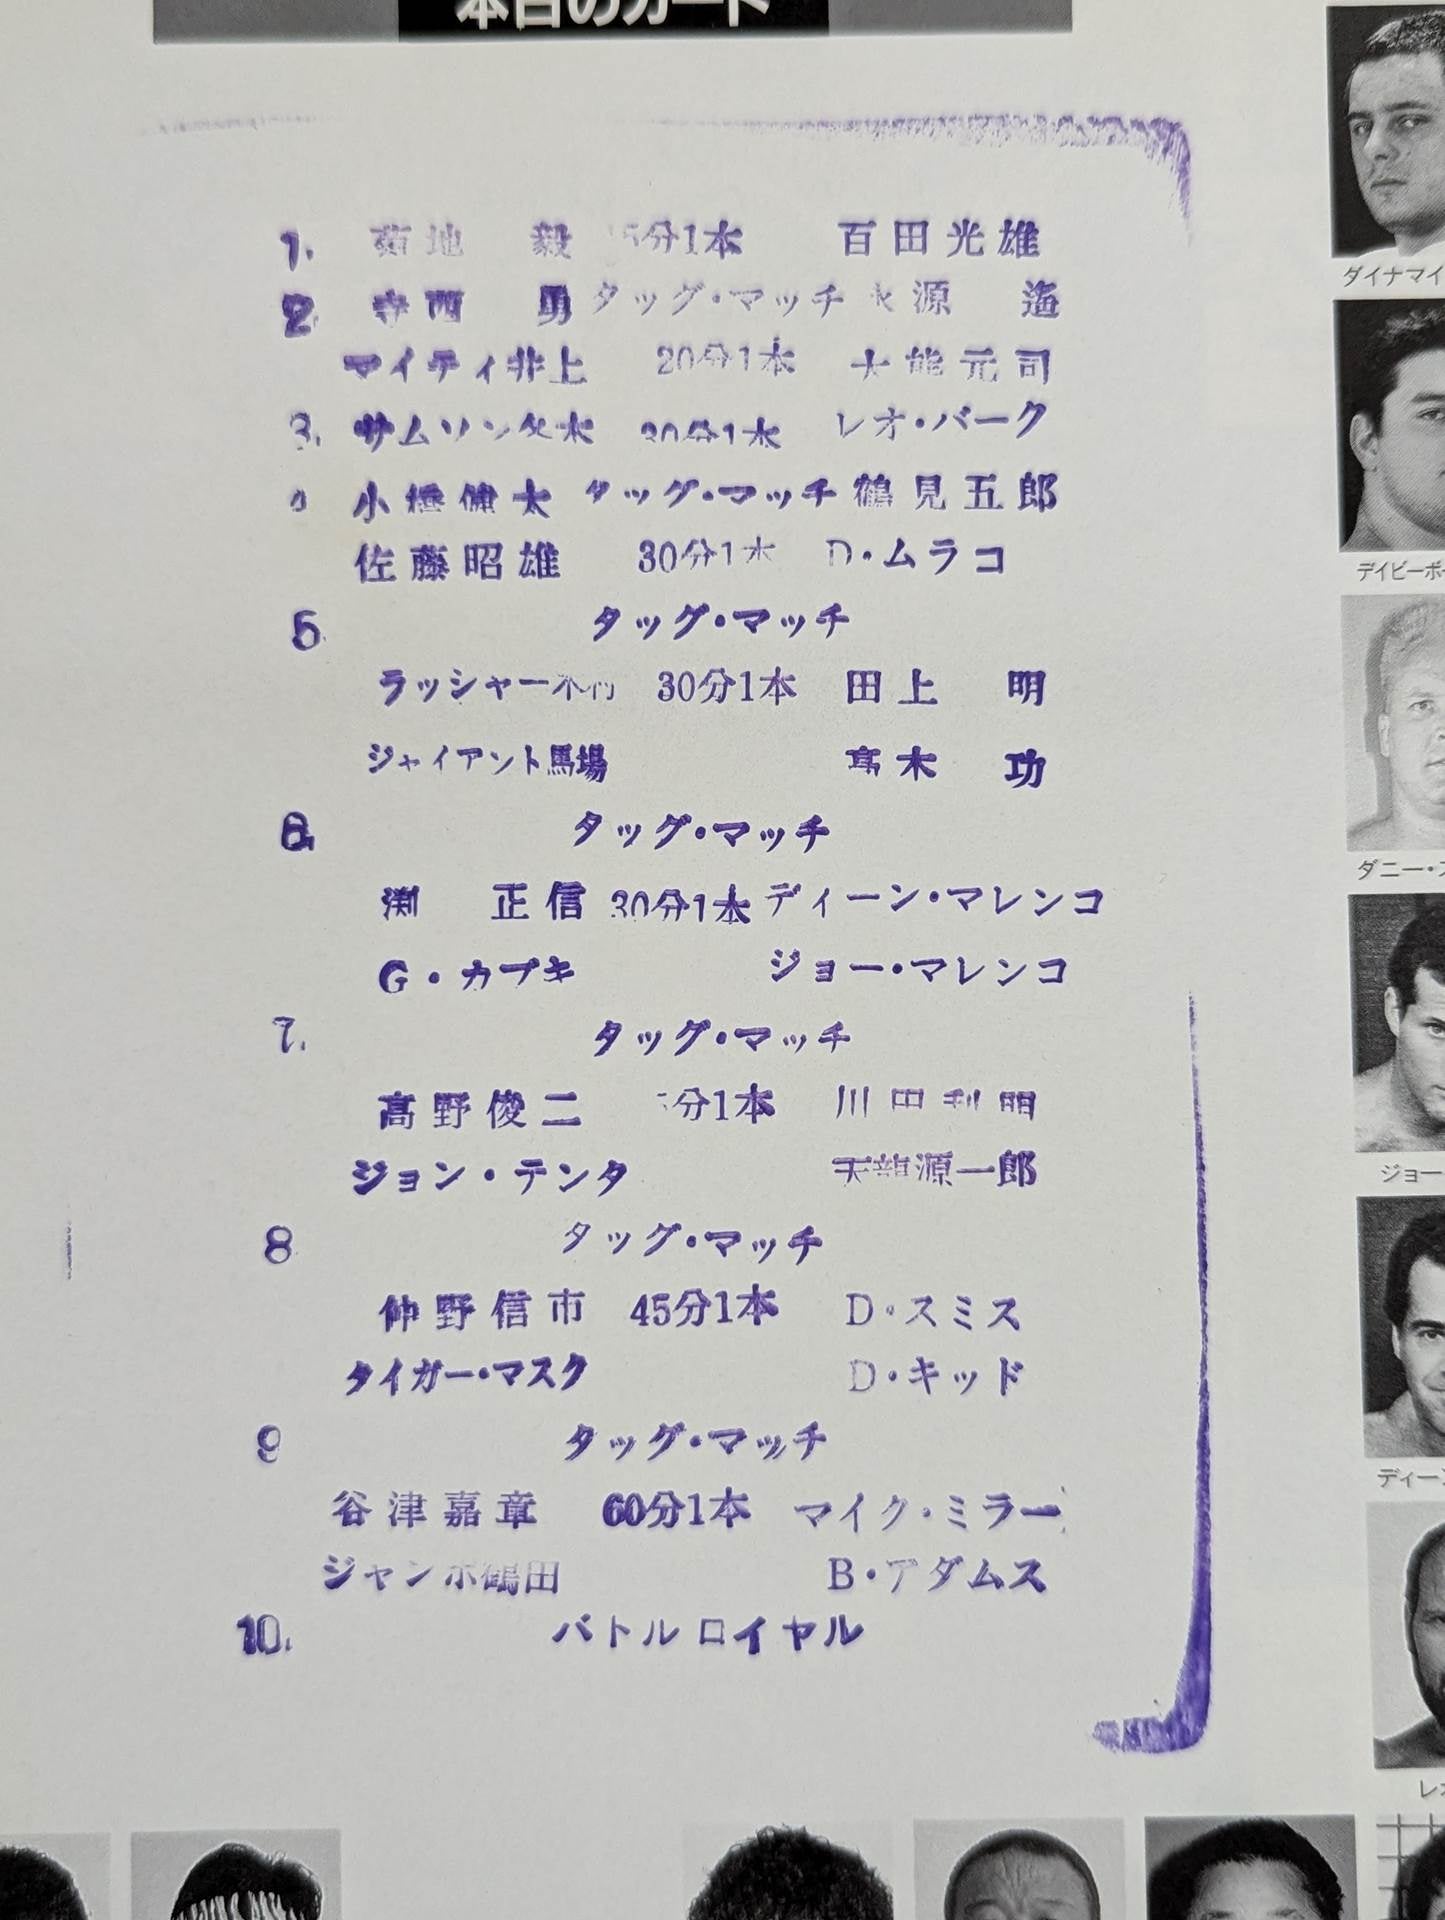 本日のカード
1. 菊地 毅 5分1本 百田光雄
2. 寺西 勇 タッグ・マッチ 源 遥
マイティ井上 20分1本 大熊元司
3. サムソン冬木 30分1本 レオ・バーク
4 小橋健太 タッグ・マッチ 鶴見五郎
佐藤昭雄 30分1本 D・ムラコ
5. タッグ・マッチ
ラッシャー木村 30分1本 田上 明
ジャイアント馬場 高木 功
6. タッグ・マッチ
渕 正信 30分1本 ディーン・マレンコ
G・カブキ ジョー・マレンコ
7. タッグ・マッチ
高野俊二 分1本 川田利明
ジョン・テンタ 天龍源一郎
8 タッグ・マッチ
仲野信市 45分1本 D・スミス
タイガー・マスク D・キッド
9 タッグ・マッチ
谷津嘉章 60分1本 マイク・ミラー
ジャンボ鶴田 B・アダムス
10. バトルロイヤル
ダイナマイ
デイビーボー
ダニー・ス
ジョー
ディー
レオ